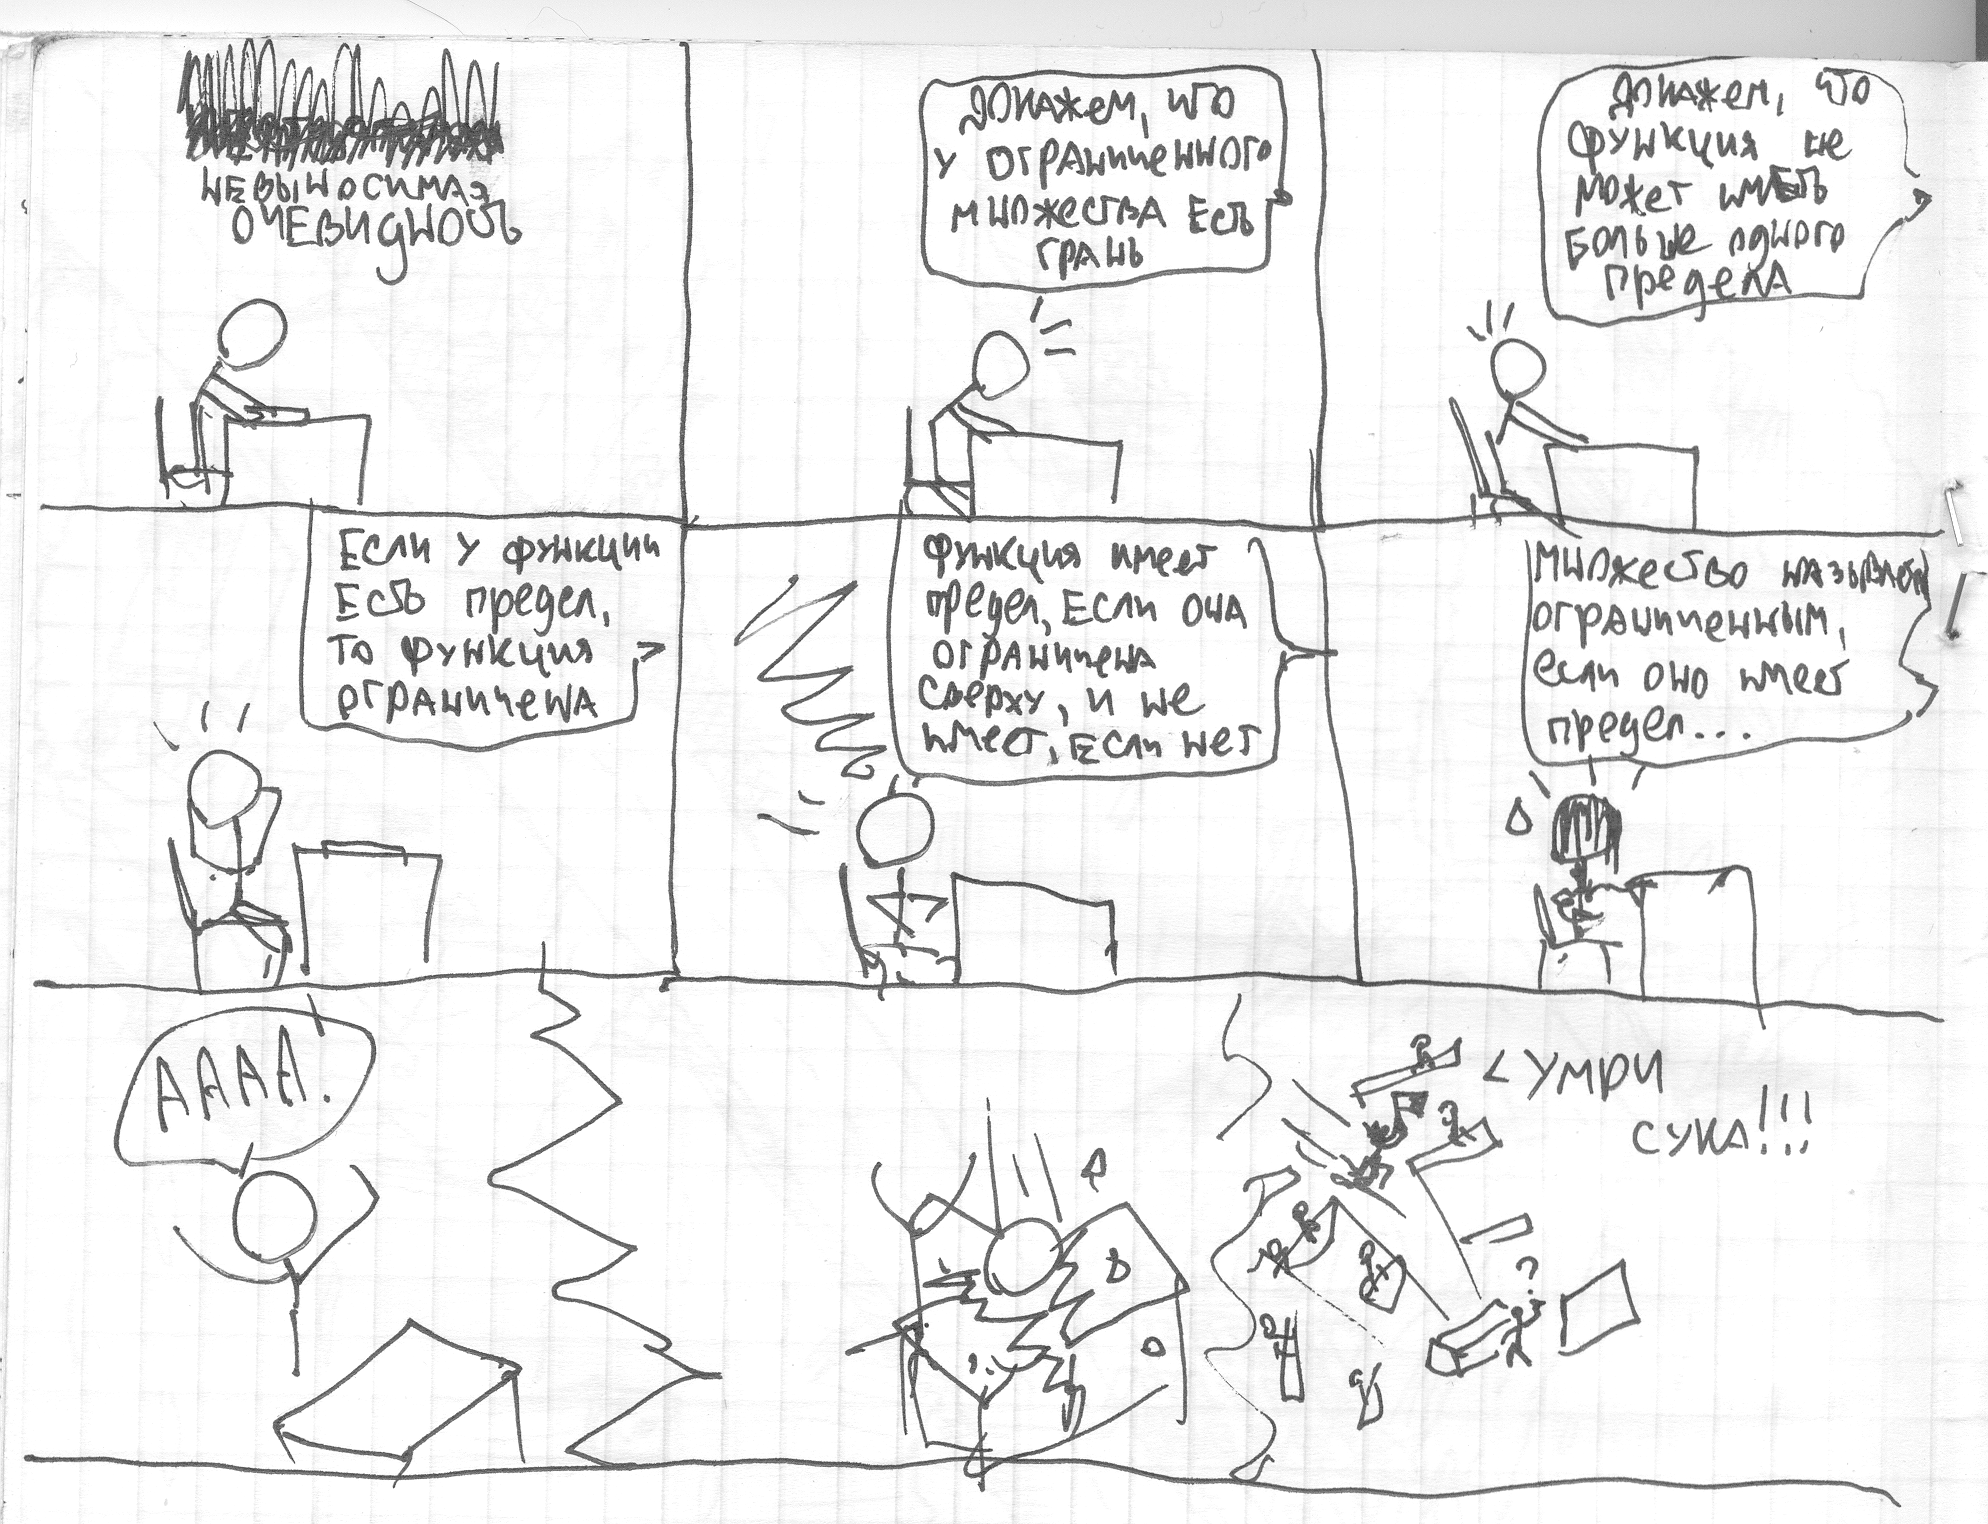 НЕВЫНОСИМАЯ
ОЧЕВИДНОСТЬ
ДОКАЖЕМ, ЧТО
У ОГРАНИЧЕННОГО
МНОЖЕСТВА ЕСТЬ
ГРАНЬ
ДОКАЖЕМ, ЧТО
ФУНКЦИЯ НЕ
МОЖЕТ ИМЕТЬ
БОЛЬШЕ ОДНОГО
ПРЕДЕЛА
ЕСЛИ У ФУНКЦИИ
ЕСТЬ ПРЕДЕЛ,
ТО ФУНКЦИЯ
ОГРАНИЧЕНА
ФУНКЦИЯ ИМЕЕТ
ПРЕДЕЛ, ЕСЛИ ОНА
ОГРАНИЧЕНА
СВЕРХУ, И НЕ
ИМЕЕТ, ЕСЛИ НЕТ
МНОЖЕСТВО НАЗЫВАЕТСЯ
ОГРАНИЧЕННЫМ,
ЕСЛИ ОНО ИМЕЕТ
ПРЕДЕЛ...
АААА.
< УМРИ
СУКА!!!
?